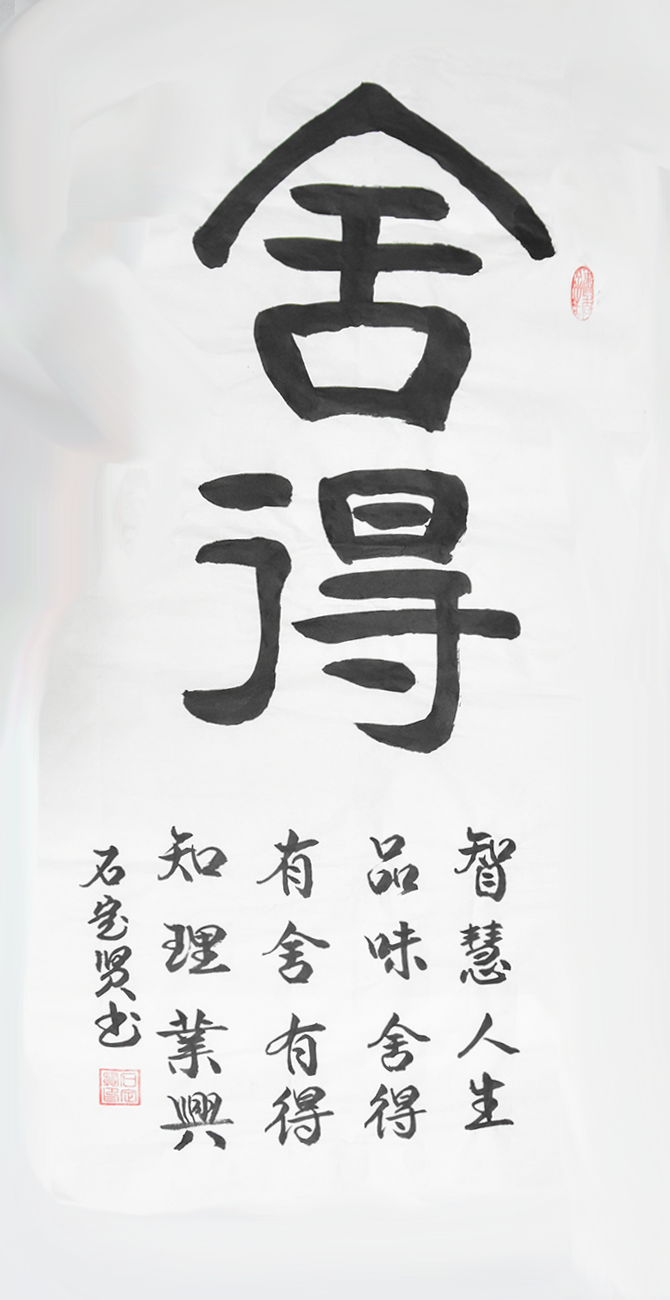 舍得
智慧人生
品味舍得
有舍有得
知理業興
石定贤书